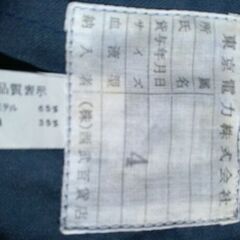 東京電力株式会社
所属
氏名
貸与年月日
サイズ 4
血液型
納入者 (株)西武百貨店
品質表示
65%
35%